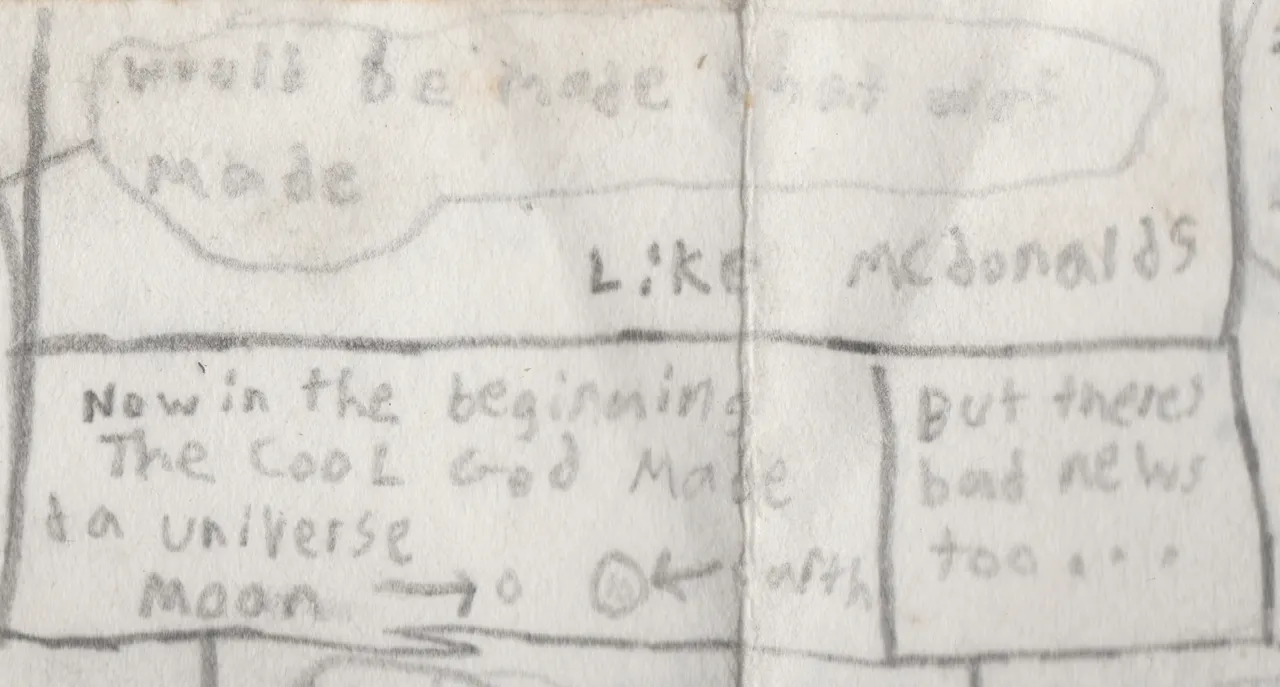 would be made that was
made
Like Mcdonalds
Now in the beginning
The CooL God Made
da universe
Moon
earth
But theres
bad news
too....